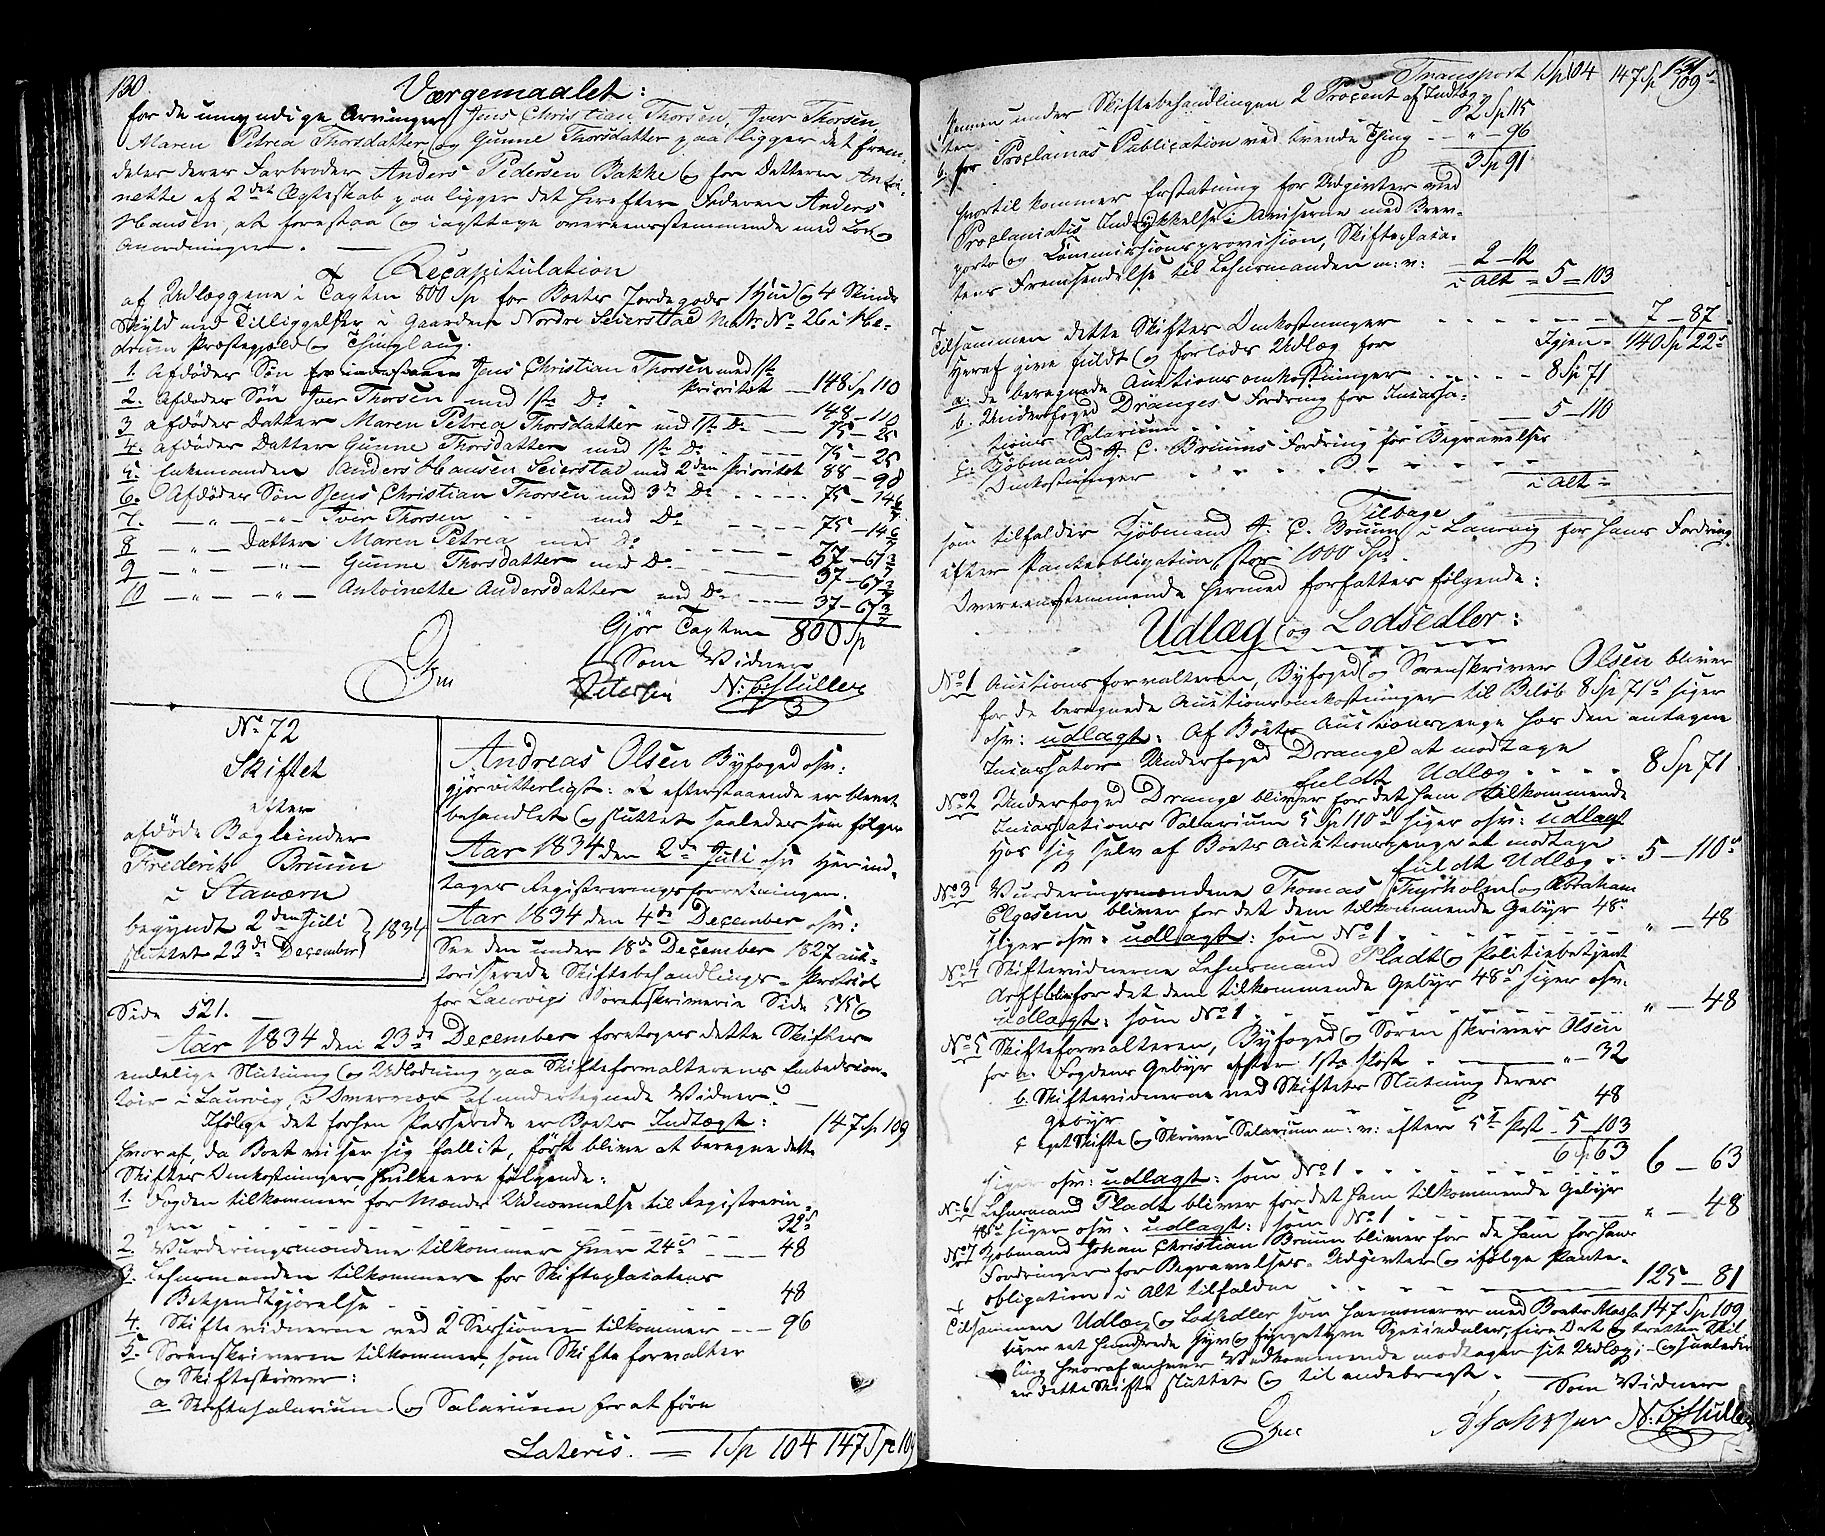 130.
Værgemaalet:
for de umyndige Arvinger Jens Christian Thorsen, Iver Thorsen,
Maren Petrea Thorsdatter og Gunne Thorsdatter paa ligger det frem-
deles deres Farbroder Anders Pedersen Bakke og for Datteren Antoi-
nette af 2det Ægteskab paa ligger det herefter Faderen Anders
Hansen, at forestaa og iagttage overeensstemmende med Lov og
Anordninger. —
Recapitulation
af Udlæggene i Taxten 800 Sp for Boets Jordegods 1 Hud og 4 Skinds
Skyld med Tilliggelser i Gaarden Nordre Seierstad Matr. No 26 i He-
drum Præstegjeld og Thinglaug.
1. Afdødes Søn Jens Christian Thorsen med 1ste
Prioritet — 148 Sp 110
2. Afdødes Søn Iver Thorsen med 1ste Do — 148 – 110
3 afdødes Datter Maren Petrea Thorsdatter med 1ste Do — 75 – 25
4. afdødes Datter Gunne Thorsdatter med 1ste Do — 75 – 25
5. Enkemanden Anders Hansen Seierstad med 2den Prioritet 88 – 90
6. Afdødes Søn Jens Christian Thorsen med 3de Do — 75 – 14 6/7
7. — " — " — Iver Thorsen med Do — 75 – 14 6/7
8 — " — Datter Maren Petrea med Do — 37 – 67 3/7
9 — " — " — Gunne Thorsdatter med Do — 37 – 67 3/7
10 — " — " — Antoinette Andersdatter med Do — 37 – 67 3/7
Gjør Taxten 800 Sp
Som Vidner
Petersen N: C: Müller
No 72
Skiftet
efter
afdøde Bagleinder
Frederik Bruun
i Staværn
begyndt 2den Juli
sluttet 23de December } 1834
Andreas Olsen Byfoged osv:
gjør vitterligt: at efterstaaende er blevet
behandlet og sluttet saaledes som følger
Aar 1834 den 2de Juli osv Herind-
tages Registreringsforretningen.
Aar 1834 den 4de December osv:
See den under 18de December 1827 aut-
toriserede Skiftebehandlings-Protocol
for Laurvigs Sorenskriverie Side 515 og
Side 521. —
Aar 1834 den 23de December foretoges dette Skiftes
endelige Slutning og Udlodning paa Skifteforvalterens Embedscon-
toir i Laurvig, i Overvær af undertegnede Vidner. —
Ifølge det forhen Passerede er Boets Indtægt: 147 Sp 109
hvoraf, da Boet viser sig fallit, først blive at beregne dette
Skiftes Omkostninger, hvilke ere følgende:
1. Fogden tilkommer for Mænds Udnævnelse til Registrerin-
gen — 32 s
2. Vurderingsmændene tilkommer hver 24 s — 48
3. Lehnsmanden tilkommer for Skifteplacatens
Bekjendtgjørelse — 48
4. Skiftevidnerne ved 2 Sessioner tilkommer — 96
5. Sorenskriveren tilkommer, som Skifteforvalter
og Skifteskriver:
a Skiftesalarium og Salarium for at føre
Lateris. = 1 Sp 104 147 Sp 109
131
Transport 1 Sp 104 147 Sp 109 s
Pennen under Skiftebehandlingen 2 Procent af Indtæg-
ten — 2 Sp 115
b. for Proclamas Publication ved tvende Thing — " – 96
3 Sp 91
hvortil kommer Erstatning for Udgivter ved
Proclamatis Indrykkelse i Aviserne med Brev-
porto og Commissionsprovision, Skifteplaca-
tens Fremsendelse til Lehnsmanden m: v: 2 – 12
i Alt = 5 – 103
Tilsammen dette Skiftes Omkostninger — 7 – 87
Igjen = 140 Sp 22 s
Heraf give fuldt og forlods Udlæg for
a. de beregnede Auctionsomkostninger — 8 Sp 71
b. Underfoged Dranges Fordring for Incassa-
tions Salarium — 5 – 110
c. Kjøbmand J. C. Bruuns Fordring for Begravelses
Omkostninger
i Alt =
Tilbage
som tilfalder Kjøbmand J. C. Bruun i Laurvig for hans Fordring
efter Pantobligation, stor 1000 Spd.
Overeensstemmende hermed forfattes følgende:
Udlæg og Lodsedler:
No 1 Auctionsforvalteren, Byfoged og Sorenskriver Olsen bliver
for de beregnede Auctionsomkostninger til Beløb 8 Sp 71 s siger
osv: udlagt: Af Boets Auctionspenge hos den antagne
Incassator Underfoged Drange at modtage
fuldt Udlæg — 8 Sp 71
No 2 Underfoged Drange bliver for det ham tilkommende
Incassations Salarium 5 Sp 110 s siger osv: udlagt
Hos sig selv af Boets Auctionspenge at modtage
fuldt Udlæg — 5 – 110 s
No 3 Vurderingsmændene Thomas Thorsholm og Abraham
Elgesem bliver for det dem tilkommende Gebyr 48 s
siger osv: udlagt: som No 1 — " – 48
No 4 Skiftevidnerne Lehnsmand Pladt og Politiebetjent
Arff bliver for det dem tilkommende Gebyr 48 s siger osv.
udlagt: som No 1 — " – 48
No 5 Skifteforvalteren, Byfoged og Sorenskriver Olsen
for a. Fogdens Gebyr efter 1ste Post — " – 32
b. Skiftevidnerne ved Skiftets Slutning deres
Gebyr — 48
c eget Skifte og Skriver Salarium m: v: efter 5te Post 5 – 103
6 Sp 63
siger osv: udlagt: som No 1 — 6 – 63
No 6 Lehnsmand Pladt bliver for det ham tilkommende Gebyr
48 s siger osv: udlagt: som No 1 — " – 48
No 7 Kjøbmand Johan Christian Bruun bliver for de ham forhen
Fordringer for Begravelses-Udgivter og ifølge Pante-
obligation i Alt tilfaldne — 125 – 81
Tilsammen Udlæg og Lodsedler som harmonerer med Boets Massa 147 Sp 109
siger eet Hundrede syv og fyrgetyve Speciedaler, fire Ort og tretten Skil-
ling hvoraf enhver Vedkommende modtager sit Udlæg; – og saaledes
er dette Skifte sluttet og til endebragt.
Som Vidner
N. C. Müller